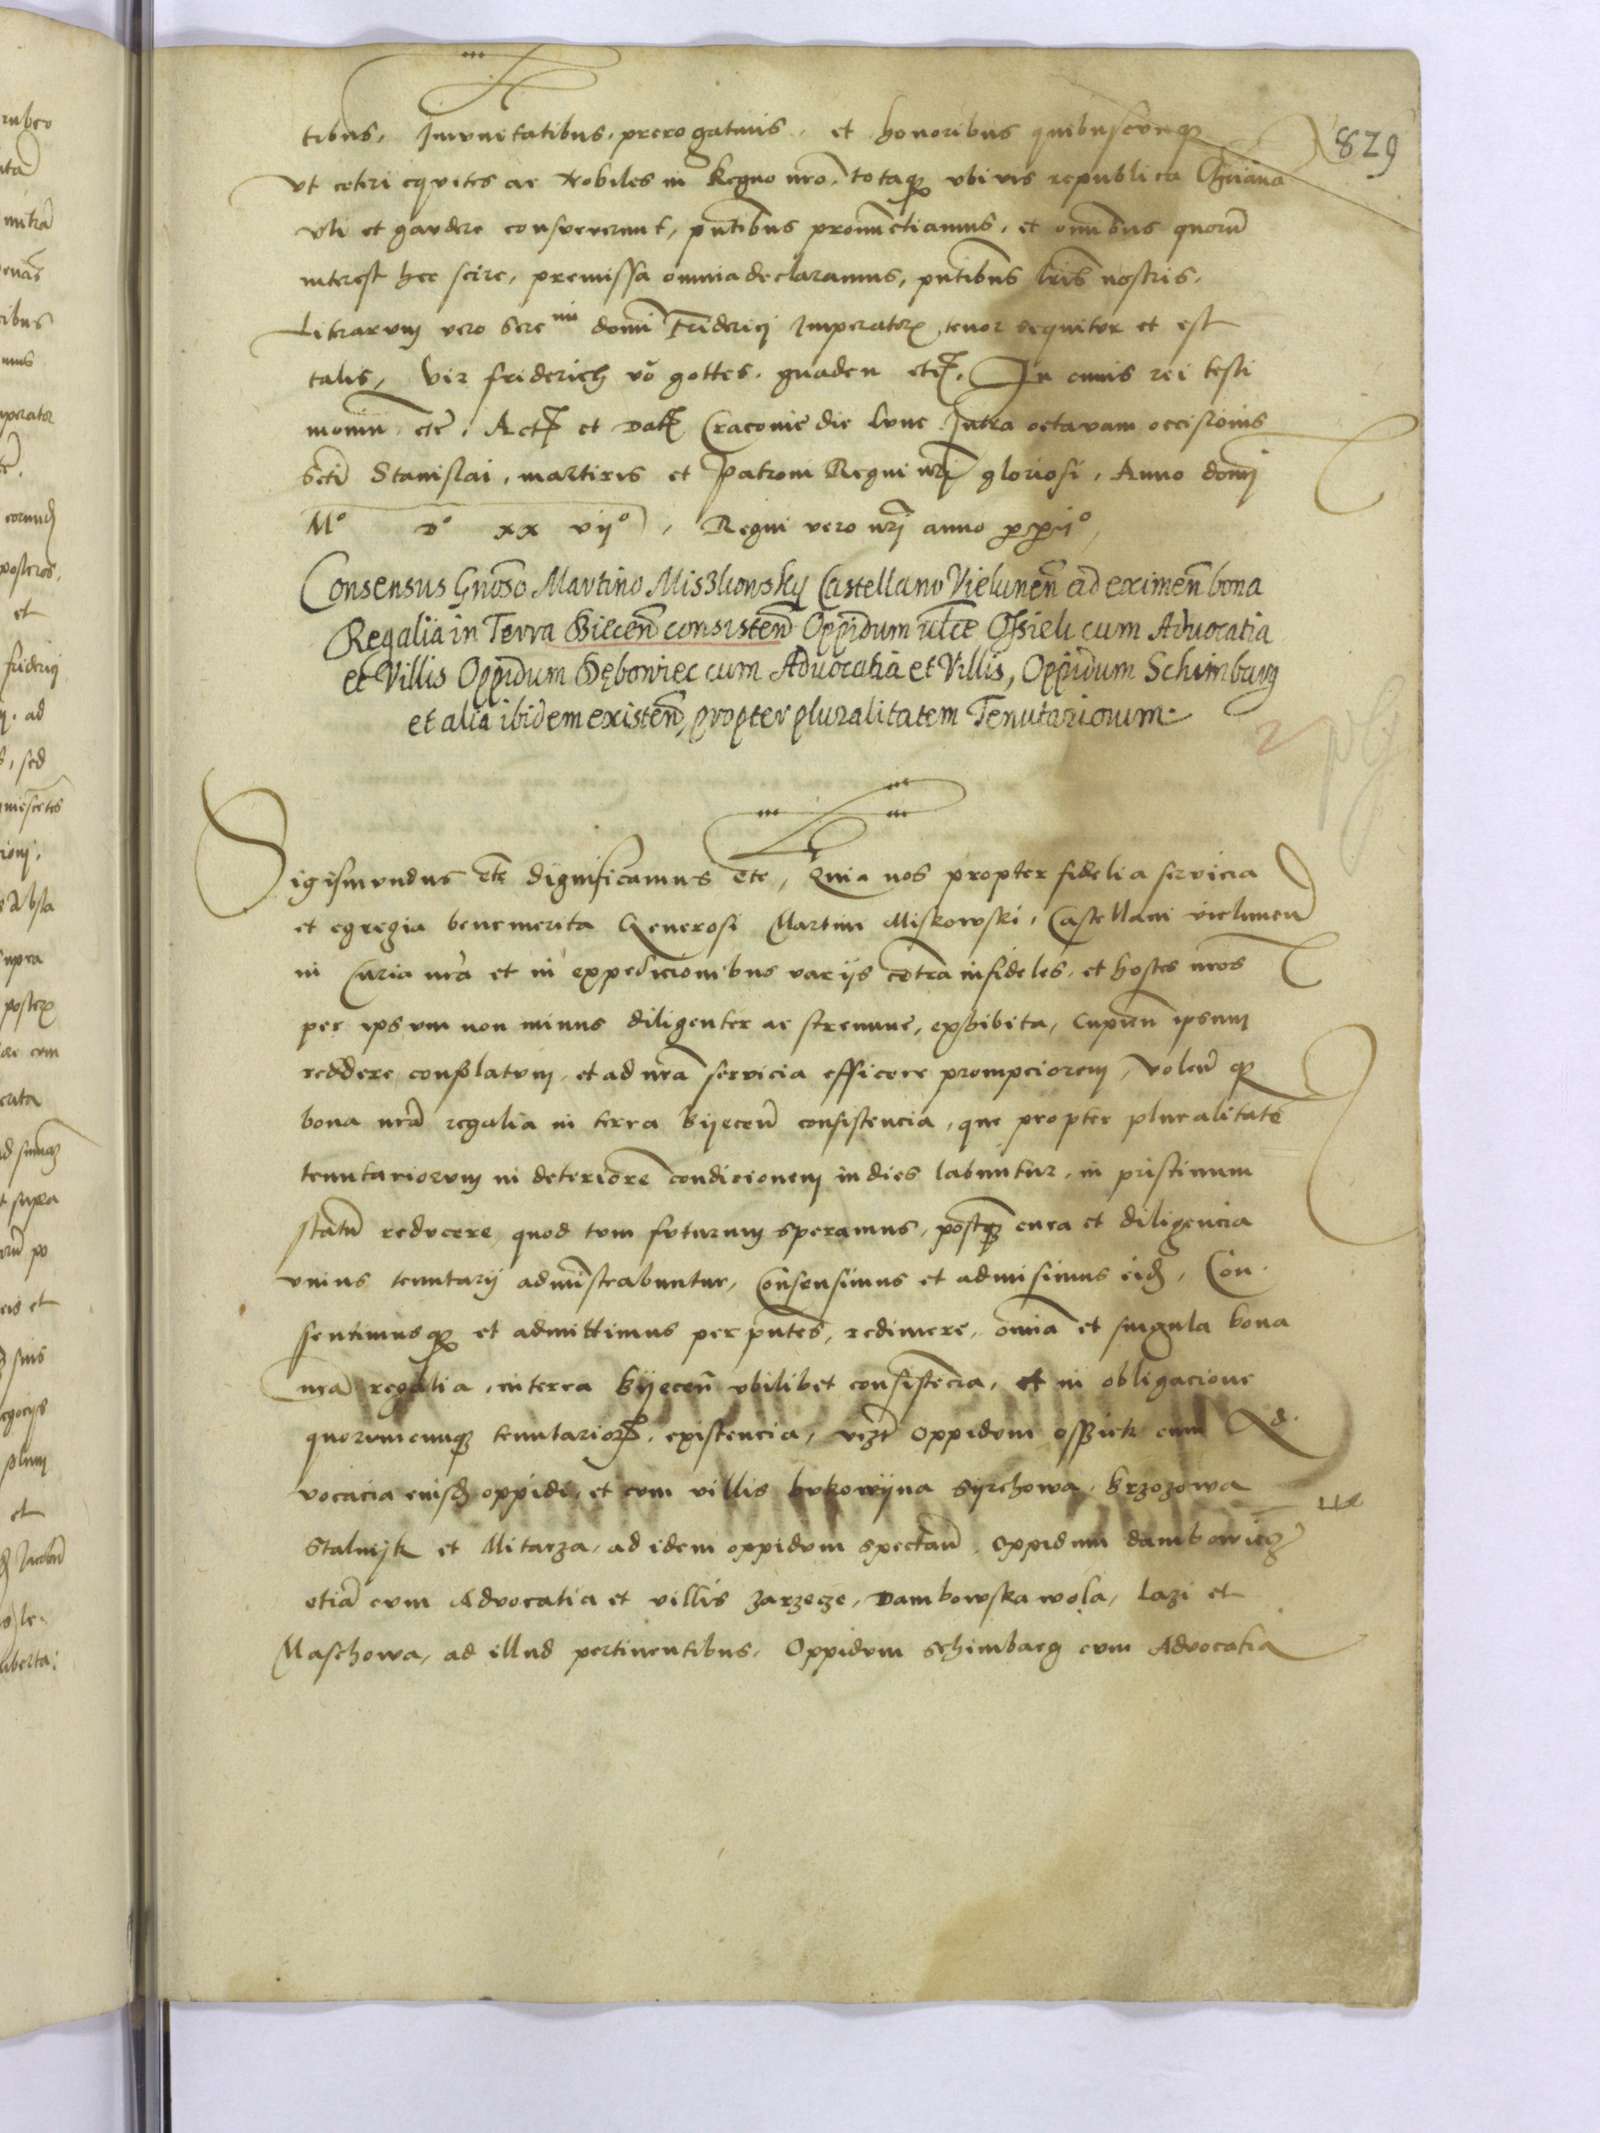 829
tibus, Jmunitatibus, prerogativis, et honoribus quibuscunq
vt ceteri equites ac Nobiles in Regno nro, totaq vbivis republica Chriana
vti et gaudere consueverunt, pntibus pronunctiamus, et omibus quorũ
interest hec scire, premissa omnia declaramus, pntibus lris nostris,
Literarum vero Sere mi domi Friderici Imperator tenor sequitur et est
talis, Vir friderich võ gottes gnaden etc. In cuius rei testi
moniũ etc. Act et Dat Cracovie die lune Intra octavam occisionis
Scti Stanislai, martiris et Patroni Regni nri gloriosi, Anno domi
Mº Dº xx vijº, Regni vero nri anno
Consensus Gnoso Martino Miszkowsky Castellano Vielunen ad eximen bona
Regalia in Terra Biecen consisten Oppidum Ossiek cum Advocatia
et Villis Oppidum Dębowiec cum Advocatia et Villis, Oppidum Schimbarg
et alia ibidem existen, propter pluralitatem Tenutariorum
Sigismundus etc Significamus etc, Quia nos propter fidelia servicia
et egregia benemerita Generosi Martini Miskowski, Castellani vielunen
in Curia nra et in expedicionibus varijs cõtra infideles et hostes nros
per ipsum non minus diligenter ac strenue, exhibita, cupien ipsum
reddere consolatum, et ad nra servicia efficere prompciorem, volen q
bona nra regalia in terra Byecen consistencia, que propter pluralitatẽ
tenutariorum in deteriorẽ condicionem in dies labuntur, in pristinum
statũ reducere, quod tum futurum speramus, postq cura et diligencia
vnius tenutarij administrabuntur, Consensimus et admisimus eid, Con
sentimusq et admittimus per pntes, redimere, omia et singula bona
nra regalia, in terra Byecen vbilibet consistẽcia, et in obligacione
quorumcunq tenutarior existencia, vizt oppidum ossiek cum Ad
vocacia eiusd oppidi, et cum villis bukowyna Syrchowa, Brzozowa
Stalnijk et Mitarza, ad idem oppidum spectan, Oppidum dambowiecz
etiã cum Advocatia et villis Zarzecze, Dambowska wola, Lazi et
Maschowa, ad illud pertinentibus, Oppidum schimbarg cum Advocatia